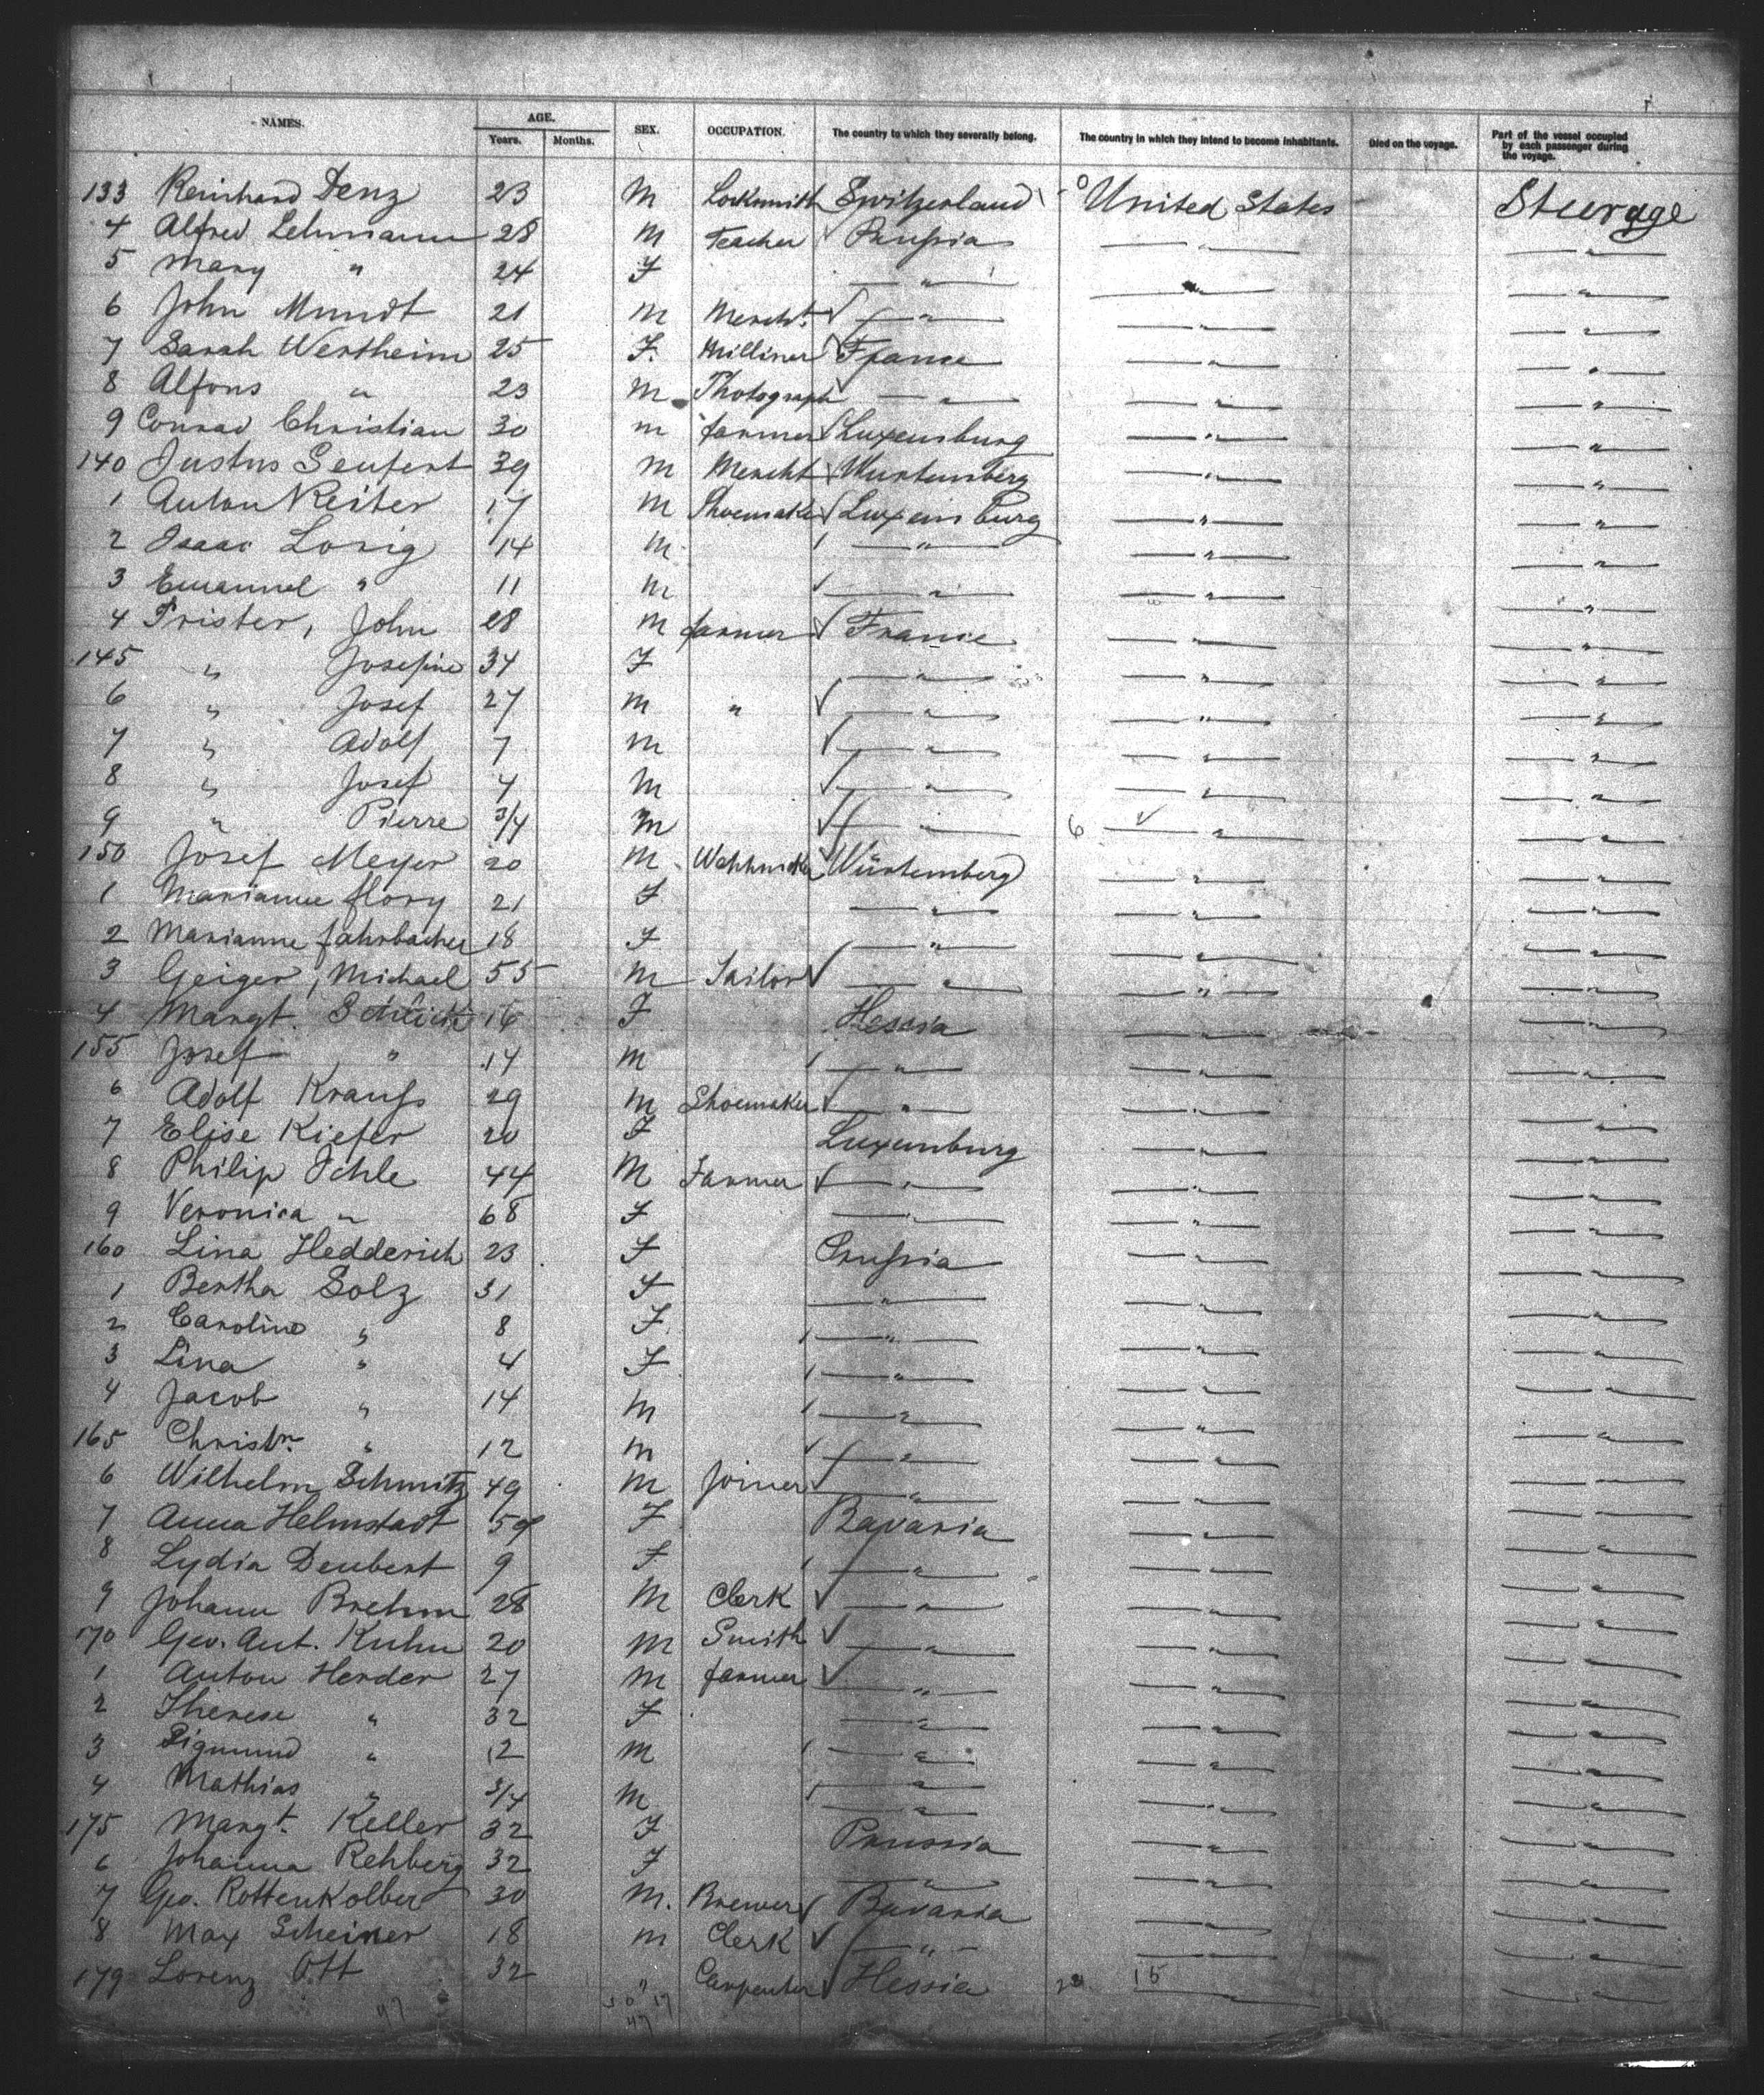 NAMES. AGE. SEX. OCCUPATION. The country to which they severally belong. The country in which they intend to become inhabitants. Died on the voyage. Part of the vessel occupied by each passenger during the voyage.
Years. Months.
133 Reinhard Denz 23 M Locksmith Switzerland United States Steerage
4 Alfred Lehmann 28 M Teacher Prussia " "
5 Mary " 24 F " " "
6 John Mundt 21 M Mercht. " " "
7 Sarah Wertheim 25 F. Milliner France " "
8 Alfons " 23 M Photograph " " "
9 Conrad Christian 30 m farmer Luxemburg " "
140 Justus Seufert 39 M Mercht Wurtemberg " "
1 Anton Reiter 17 M Shoemaker Luxemburg " "
2 Isaac Lorig 14 M " " "
3 Emanuel " 11 M " " "
4 Prister, John 28 M farmer France " "
145 " Josefine 34 F " " "
6 " Josef 27 M " " " "
7 " Adolf 7 M " " "
8 " Josef 4 M " " "
9 " Pierre 3/4 M " 6 " "
150 Josef Meyer 20 M Würtemberg " "
1 Marianne flory 21 F " " "
2 Marianne fahrbacher 18 F " " "
3 Geiger, Michael 55 M Tailor " " "
4 Margt. 16 F Hessia " "
155 Josef " 14 M " " "
6 Adolf Krauſs 29 M Shoemaker " " "
7 Elise Kiefer 20 F Luxemburg " "
8 Philip Ihle 44 M Farmer " " "
9 Veronica " 68 F " " "
160 Lina Hedderich 23 F Pruſsia " "
1 Bertha Bolz 31 F " " "
2 Caroline " 8 F " " "
3 Lina " 4 F " " "
4 Jacob " 14 M " " "
165 Christn. " 12 M " " "
6 Wilhelm Schmitz 49 M Joiner " " "
7 Anna Helmstadt 59 F Bavaria " "
8 Lydia Deubert 9 F " " "
9 Johann Brehm 28 M Clerk " " "
170 Geo. Ant. Kuhn 20 M Smith " " "
1 Anton Herder 27 M farmer " " "
2 Therese " 32 F " " "
3 Sigmund " 12 M " " "
4 Mathias " 3/4 M " " "
175 Margt. Keller 32 F Prussia " "
6 Johanna Rehberg 32 F " " "
7 Geo. Rottenkolber 30 M. Brewer Bavaria " "
8 Max Scheiner 18 m Clerk " " "
179 Lorenz Ott 32 " Carpenter Hessia 15
47 30 17
47